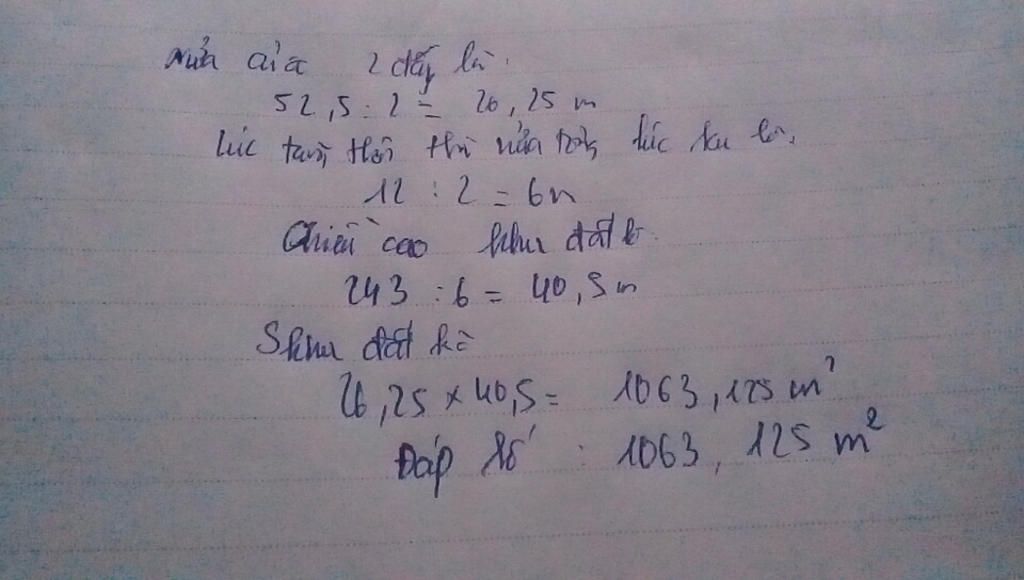 nửa của 2 đáy là.
52,5 : 2 = 26,25 m
lúc tăng thì nửa tổng lúc sau là.
12 : 2 = 6m
Chiều cao khu đất là
243 : 6 = 40,5m
S khu đất là
26,25 × 40,5 = 1063,125 m²
Đáp số : 1063,125 m²